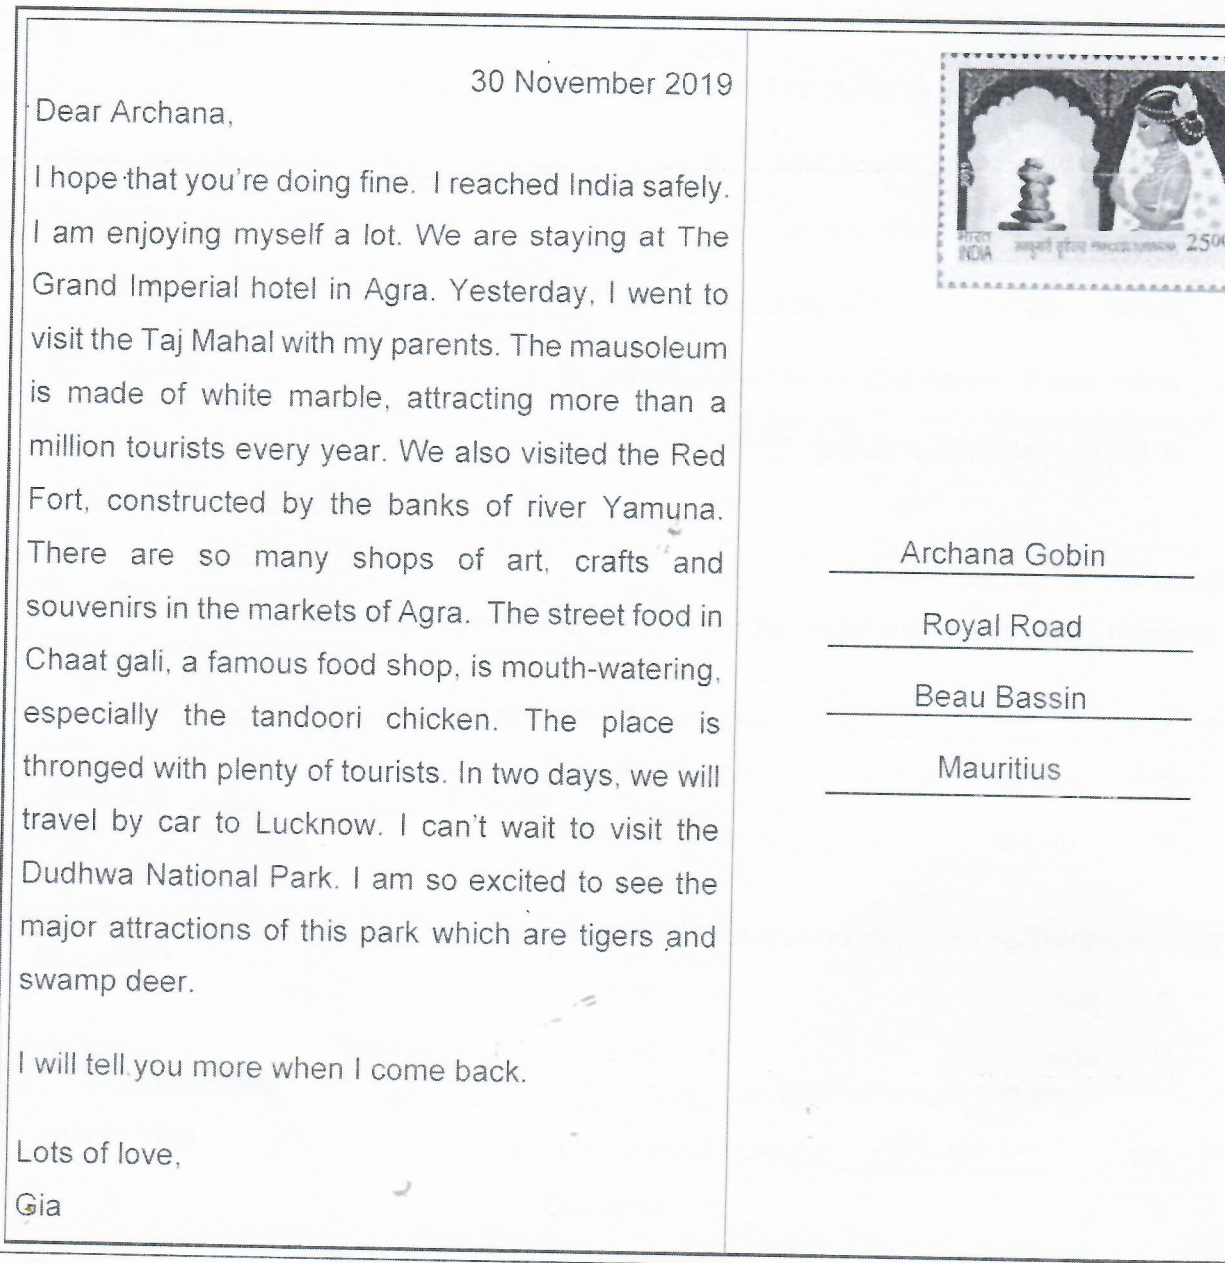 30 November 2019
Dear Archana,
I hope that you're doing fine. I reached India safely.
I am enjoying myself a lot. We are staying at The
Grand Imperial hotel in Agra. Yesterday, I went to
visit the Taj Mahal with my parents. The mausoleum
is made of white marble, attracting more than a
million tourists every year. We also visited the Red
Fort, constructed by the banks of river Yamuna.
There are so many shops of art, crafts and
souvenirs in the markets of Agra. The street food in
Chaat gali, a famous food shop, is mouth-watering,
especially the tandoori chicken. The place is
thronged with plenty of tourists. In two days, we will
travel by car to Lucknow. I can't wait to visit the
Dudhwa National Park. I am so excited to see the
major attractions of this park which are tigers and
swamp deer.
I will tell you more when I come back.
Lots of love,
Gia
भारत
INDIA
2500
Archana Gobin
Royal Road
Beau Bassin
Mauritius